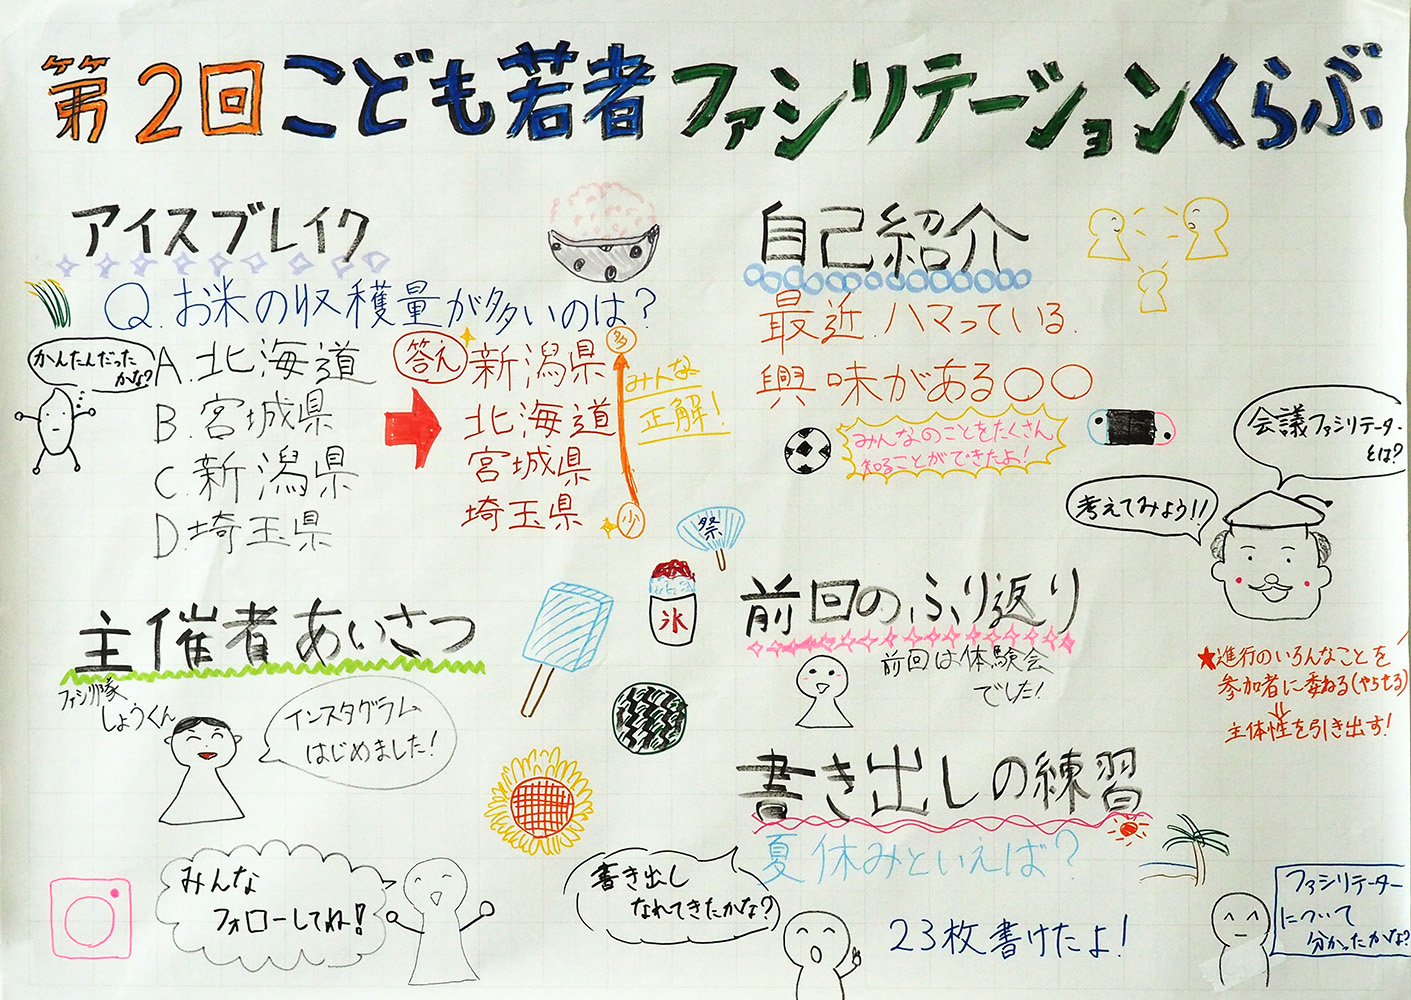 第2回こども若者ファシリテーションくらぶ
アイスブレイク
Q.お米の収穫量が多いのは?
かんたんだった
かな?
A.北海道
B.宮城県
C.新潟県
D.埼玉県
答え
新潟県
北海道
宮城県
埼玉県
多
少
みんな
正解!
主催者あいさつ
ファシリ隊
しょうくん
インスタグラム
はじめました!
みんな
フォローしてね!
祭
氷
自己紹介
最近.ハマっている.
興味がある〇〇
みんなのことをたくさん
知ることができたよ!
会議ファシリテーター
とは?
考えてみよう!!
★進行のいろんなことを
参加者に委ねる(やらせる)
⇓
主体性を引き出す!
前回のふり返り
前回は体験会
でした!
書き出しの練習
夏休みといえば?
書き出し
なれてきたかな?
23枚書けたよ!
ファシリテーター
について
分かったかな?